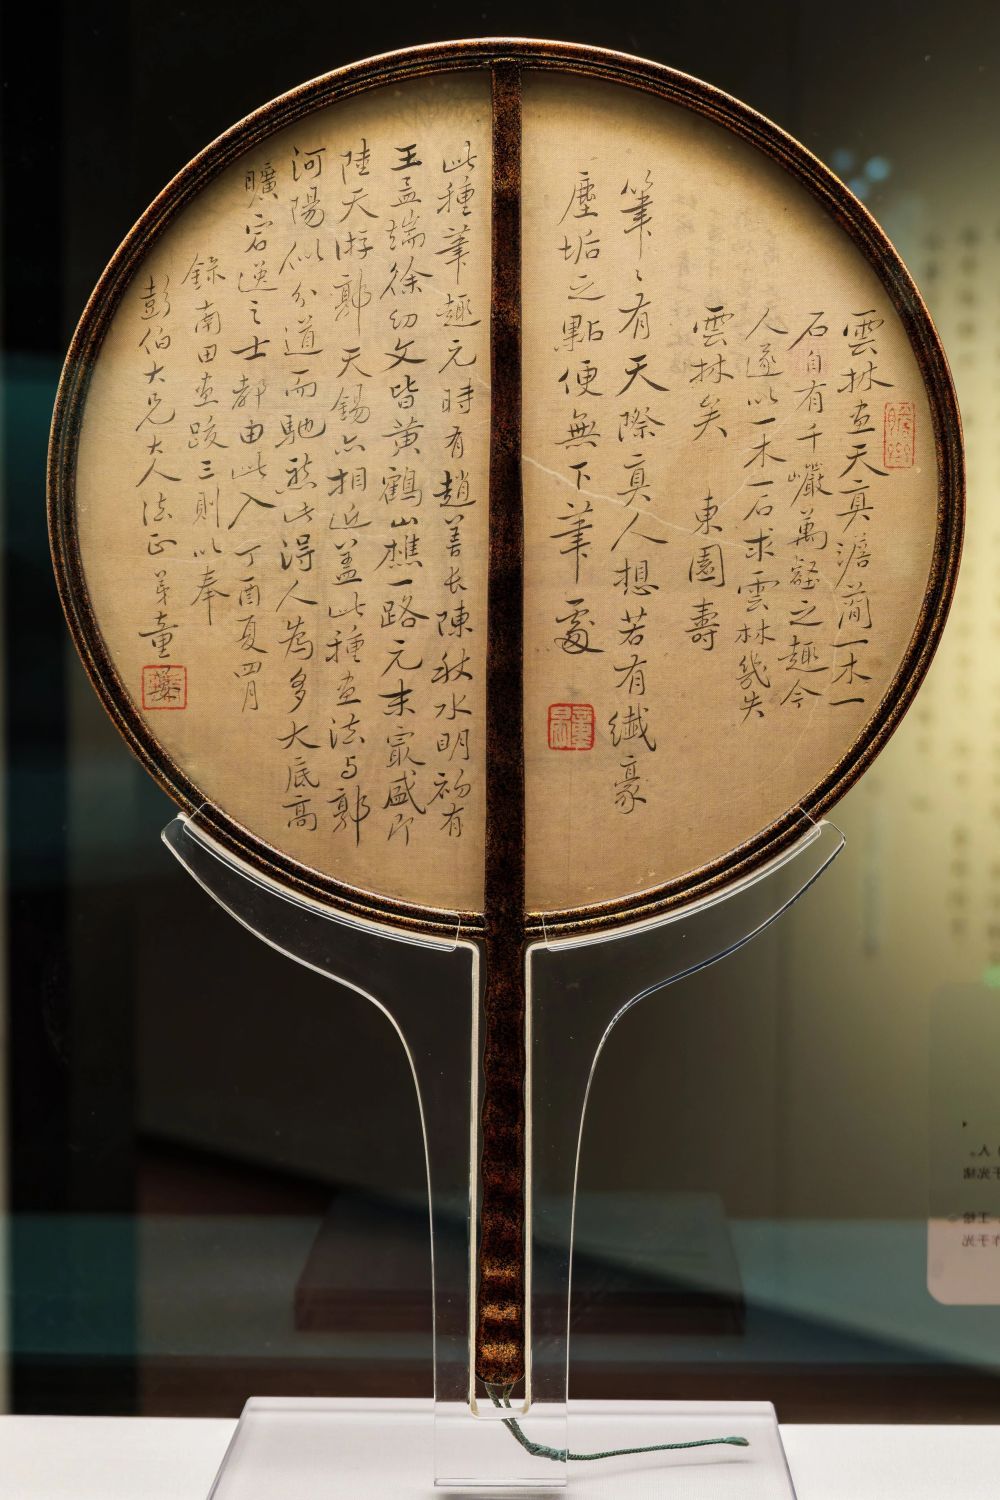 雲林畫天真澹簡一木一
石自有千巖萬壑之趣今
人遂以一木一石求雲林幾失
雲林矣　東園壽
筆〻有天際真人想若有纖豪
塵垢之點便無下筆處
此種筆趣元時有趙善長陳秋水明初有
王孟端徐幼文皆黃鶴山樵一路元末最盛即
陸天游郭天錫亦相近蓋此種畫法与郭
河陽似分道而馳然此得人為多大底高
曠宕逸之士都由此入　丁酉夏四月
錄南田畫跋三則以奉
彭伯大兄大人法正　弟童